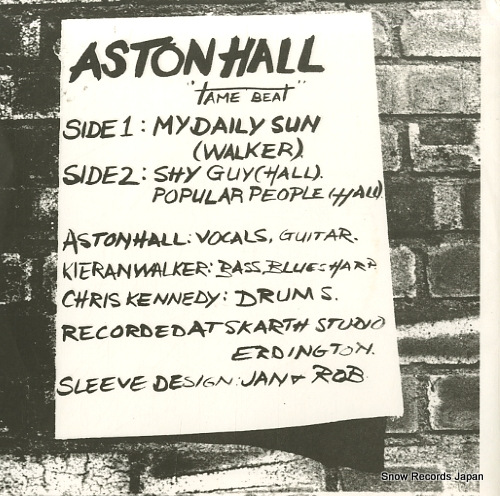 ASTON HALL
"TAME BEAT"
SIDE 1: MY DAILY SUN
(WALKER).
SIDE 2: SHY GUY (HALL).
POPULAR PEOPLE (HALL)
ASTON HALL: VOCALS, GUITAR.
KIERAN WALKER: BASS, BLUES HARP
CHRIS KENNEDY: DRUMS.
RECORDED AT SKARTH STUDIO
ERDINGTON.
SLEEVE DESIGN: JAN & ROB
Snow Records Japan